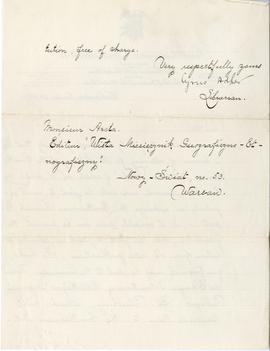 tution, free of charge.
Very respectfully yours
Cyrus Adler
Librarian.
Monsieur Arcta.
Editeur "Wisla Miesięcznik Geograficzno-Et-
nograficzny."
Nowy-Świat no. 53.
Warsaw.